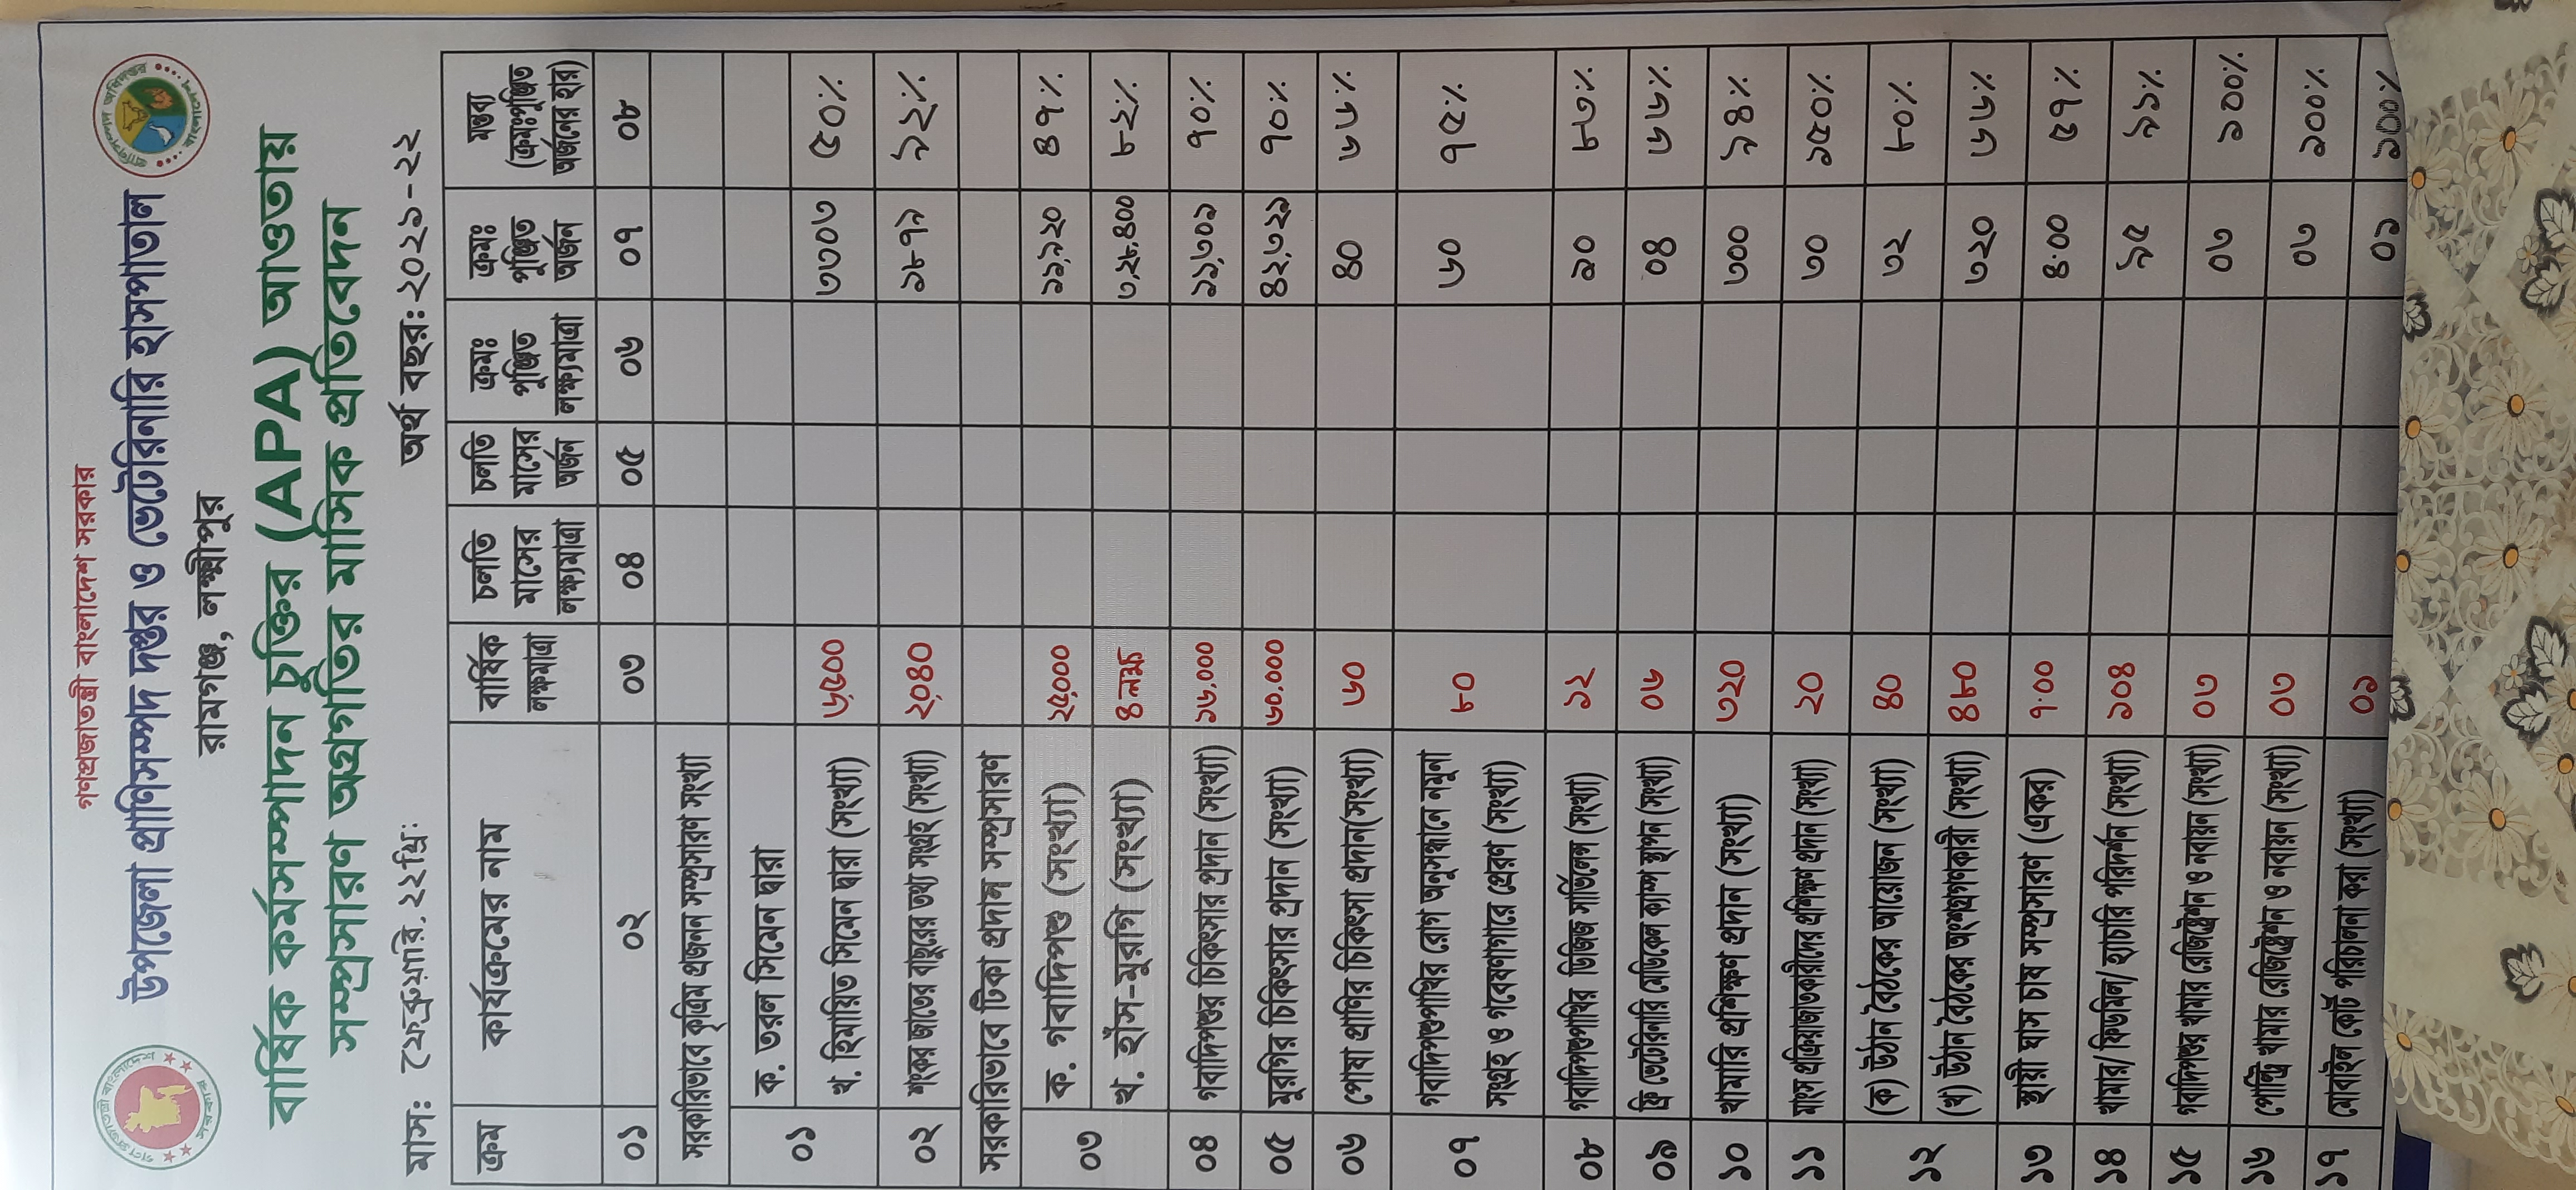 গণপ্রজাতন্ত্রী বাংলাদেশ সরকার
উপজেলা প্রাণিসম্পদ দপ্তর ও ভেটেরিনারি হাসপাতাল
রামগঞ্জ, লক্ষ্মীপুর
বার্ষিক কর্মসম্পাদন চুক্তির (APA) আওতায়
সম্প্রসারণ অগ্রগতির মাসিক প্রতিবেদন
মাস: ফেব্রুয়ারি. ২২খ্রি: অর্থ বছর: ২০২১-২২
ক্রম কার্যক্রমের নাম বার্ষিক লক্ষ্যমাত্রা চলতি মাসের লক্ষ্যমাত্রা চলতি মাসের অর্জন ক্রমঃ পুঞ্জিত লক্ষ্যমাত্রা ক্রমঃ পুঞ্জিত অর্জন মন্তব্য (ক্রমঃপুঞ্জিত অর্জনের হার)
০১ ০২ ০৩ ০৪ ০৫ ০৬ ০৭ ০৮
সরকারিভাবে কৃত্রিম প্রজনন সম্প্রসারণ সংখ্যা
০১ ক. তরল সিমেন দ্বারা
খ. হিমায়িত সিমেন দ্বারা (সংখ্যা) ৬,৫০০ ৩৩০৩ ৫০%
০২ শংকর জাতের বাছুরের তথ্য সংগ্রহ (সংখ্যা) ২,০৪০ ১৮৭৯ ৯২%
সরকারিভাবে টিকা প্রদান সম্প্রসারণ
০৩ ক. গবাদিপশু (সংখ্যা) ২৫,০০০ ১১,৯২০ ৪৭%
খ. হাঁস-মুরগি (সংখ্যা) ৪ লক্ষ ৩,২৮,৪০০ ৮২%
০৪ গবাদিপশুর চিকিৎসার প্রদান (সংখ্যা) ১৬,০০০ ১১,৩০১ ৭০%
০৫ মুরগির চিকিৎসার প্রদান (সংখ্যা) ৬০,০০০ ৪২,৩২১ ৭০%
০৬ পোষা প্রাণির চিকিৎসা প্রদান(সংখ্যা) ৬০ ৪০ ৬৬%
০৭ গবাদিপশুপাখির রোগ অনুসন্ধানে নমুনা
সংগ্রহ ও গবেষণাগারে প্রেরণ (সংখ্যা) ৮০ ৬০ ৭৫%
০৮ গবাদিপশুপাখির ডিজিজ সার্ভিলেন্স (সংখ্যা) ১২ ১০ ৮৩%
০৯ ফ্রি ভেটেরিনারি মেডিকেল ক্যাম্প স্থাপন (সংখ্যা) ০৬ ০৪ ৬৬%
১০ খামারি প্রশিক্ষণ প্রদান (সংখ্যা) ৩২০ ৩০০ ৯৪%
১১ মাংস প্রক্রিয়াজাতকারীদের প্রশিক্ষণ প্রদান (সংখ্যা) ২০ ৩০ ১৫০%
১২ (ক) উঠান বৈঠকের আয়োজন (সংখ্যা) ৪০ ৩২ ৮০%
(খ) উঠান বৈঠকের অংশগ্রহণকারী (সংখ্যা) ৪৮০ ৩২০ ৬৬%
১৩ স্থায়ী ঘাস চাষ সম্প্রসারণ (একর) ৭.০০ ৪.০০ ৫৭%
১৪ খামার/ ফিডমিল/ হ্যাচারি পরিদর্শন (সংখ্যা) ১০৪ ৯৫ ৯১%
১৫ গবাদিপশুর খামার রেজিষ্ট্রেশন ও নবায়ন (সংখ্যা) ০৩ ০৩ ১০০%
১৬ পোল্ট্রি খামার রেজিষ্ট্রেশন ও নবায়ন (সংখ্যা) ০৩ ০৩ ১০০%
১৭ মোবাইল কোর্ট পরিচালনা করা (সংখ্যা) ০১ ০১ ১০০%